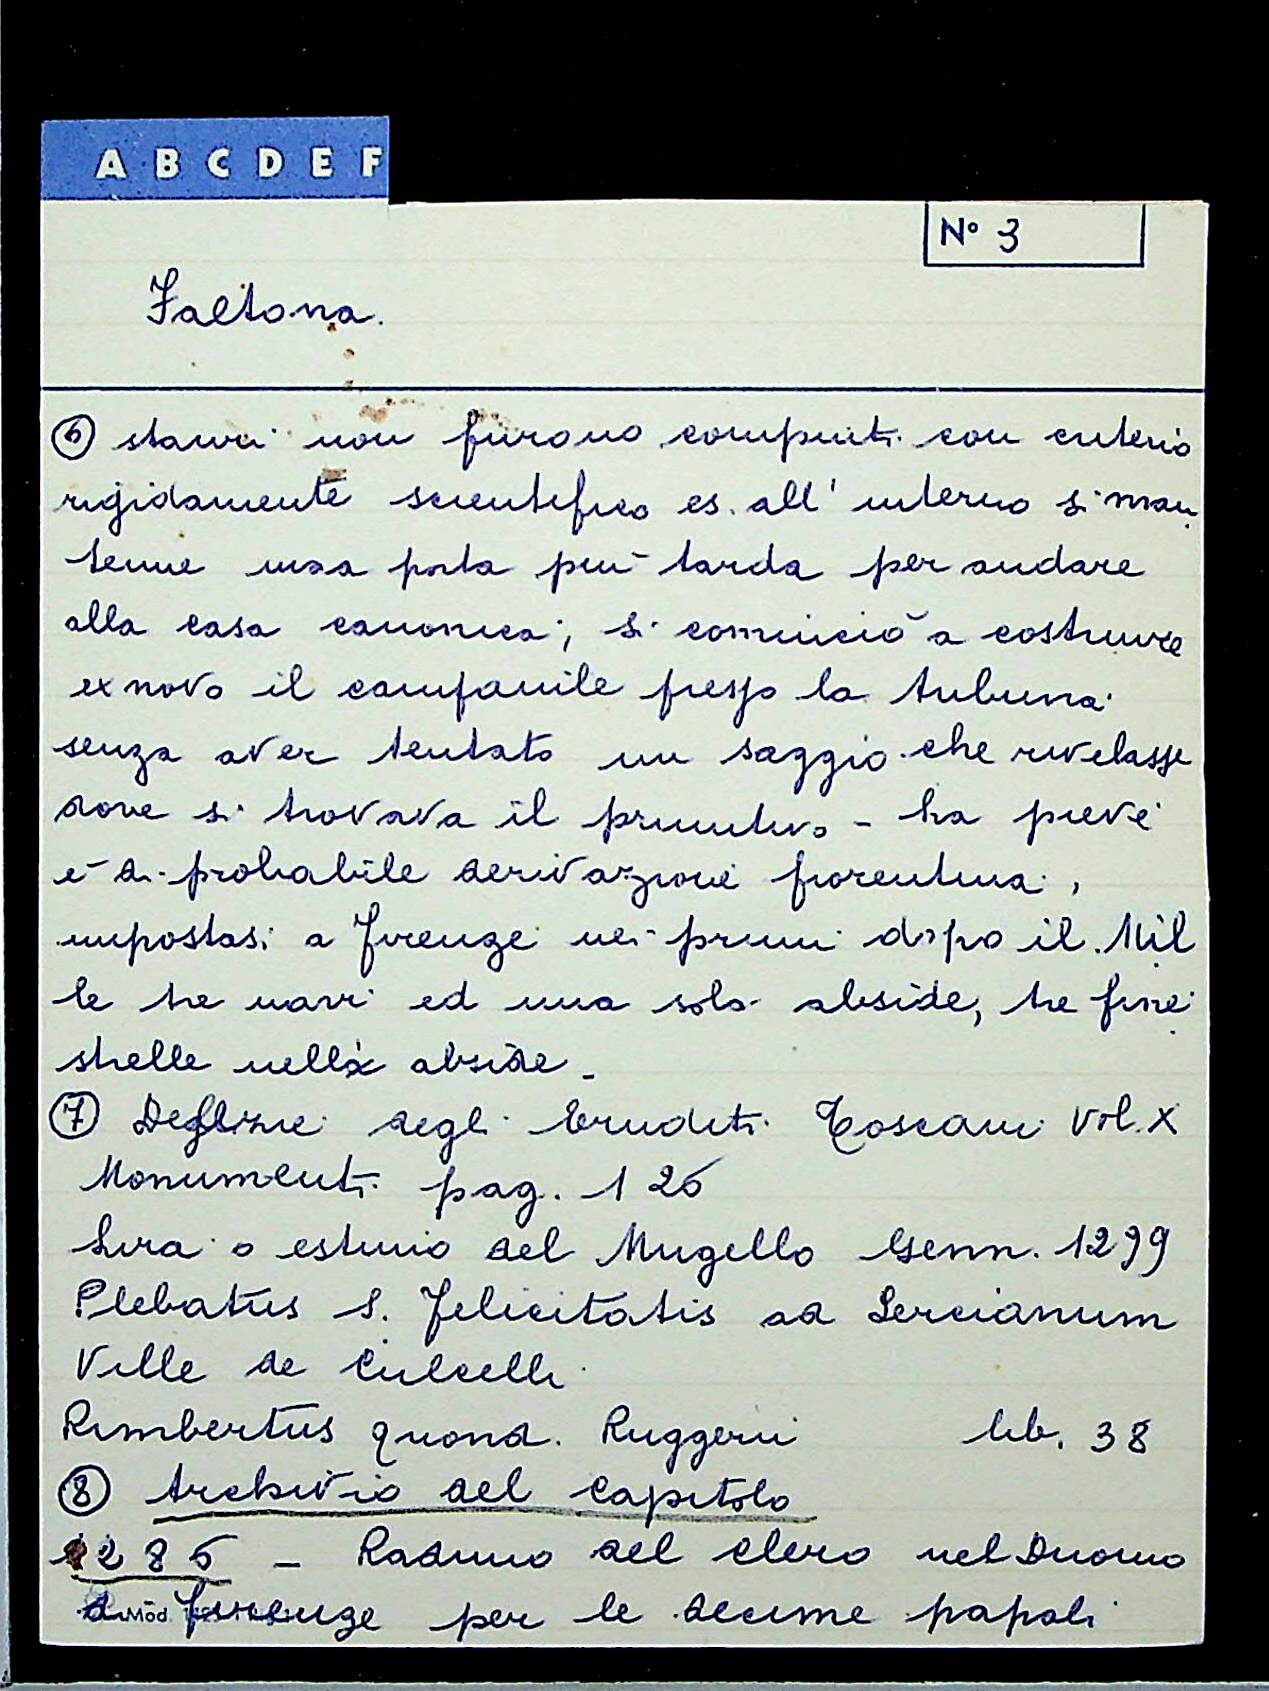 A B C D E F
N° 3
Faltona.
⑥ stauri non furono compiuti con criterio
rigidamente scientifico es. all' interno si man
tenne una porta più tarda per andare
alla casa canonica; si cominciò a costruire
ex novo il campanile presso la tribuna
senza aver tentato un saggio che rivelasse
dove si trovava il primitivo - la pieve
è di probabile derivazione fiorentina,
impostasi a Firenze nei primi dopo il Mil
le tre navi ed una sola abside, tre fine
strelle nella abside -
⑦ Delizie degli Eruditi Toscani Vol. X
Monumenti pag. 126
Lira o estimo del Mugello Genn. 1299
Plebatus S. Felicitatis ad Lercianum
Ville de Culcelli
Rimbertus quond. Ruggeri lib. 38
⑧ Archivio del Capitolo
1286 - Raduno del clero nel Duomo
di Firenze per le decime papali
Mod.